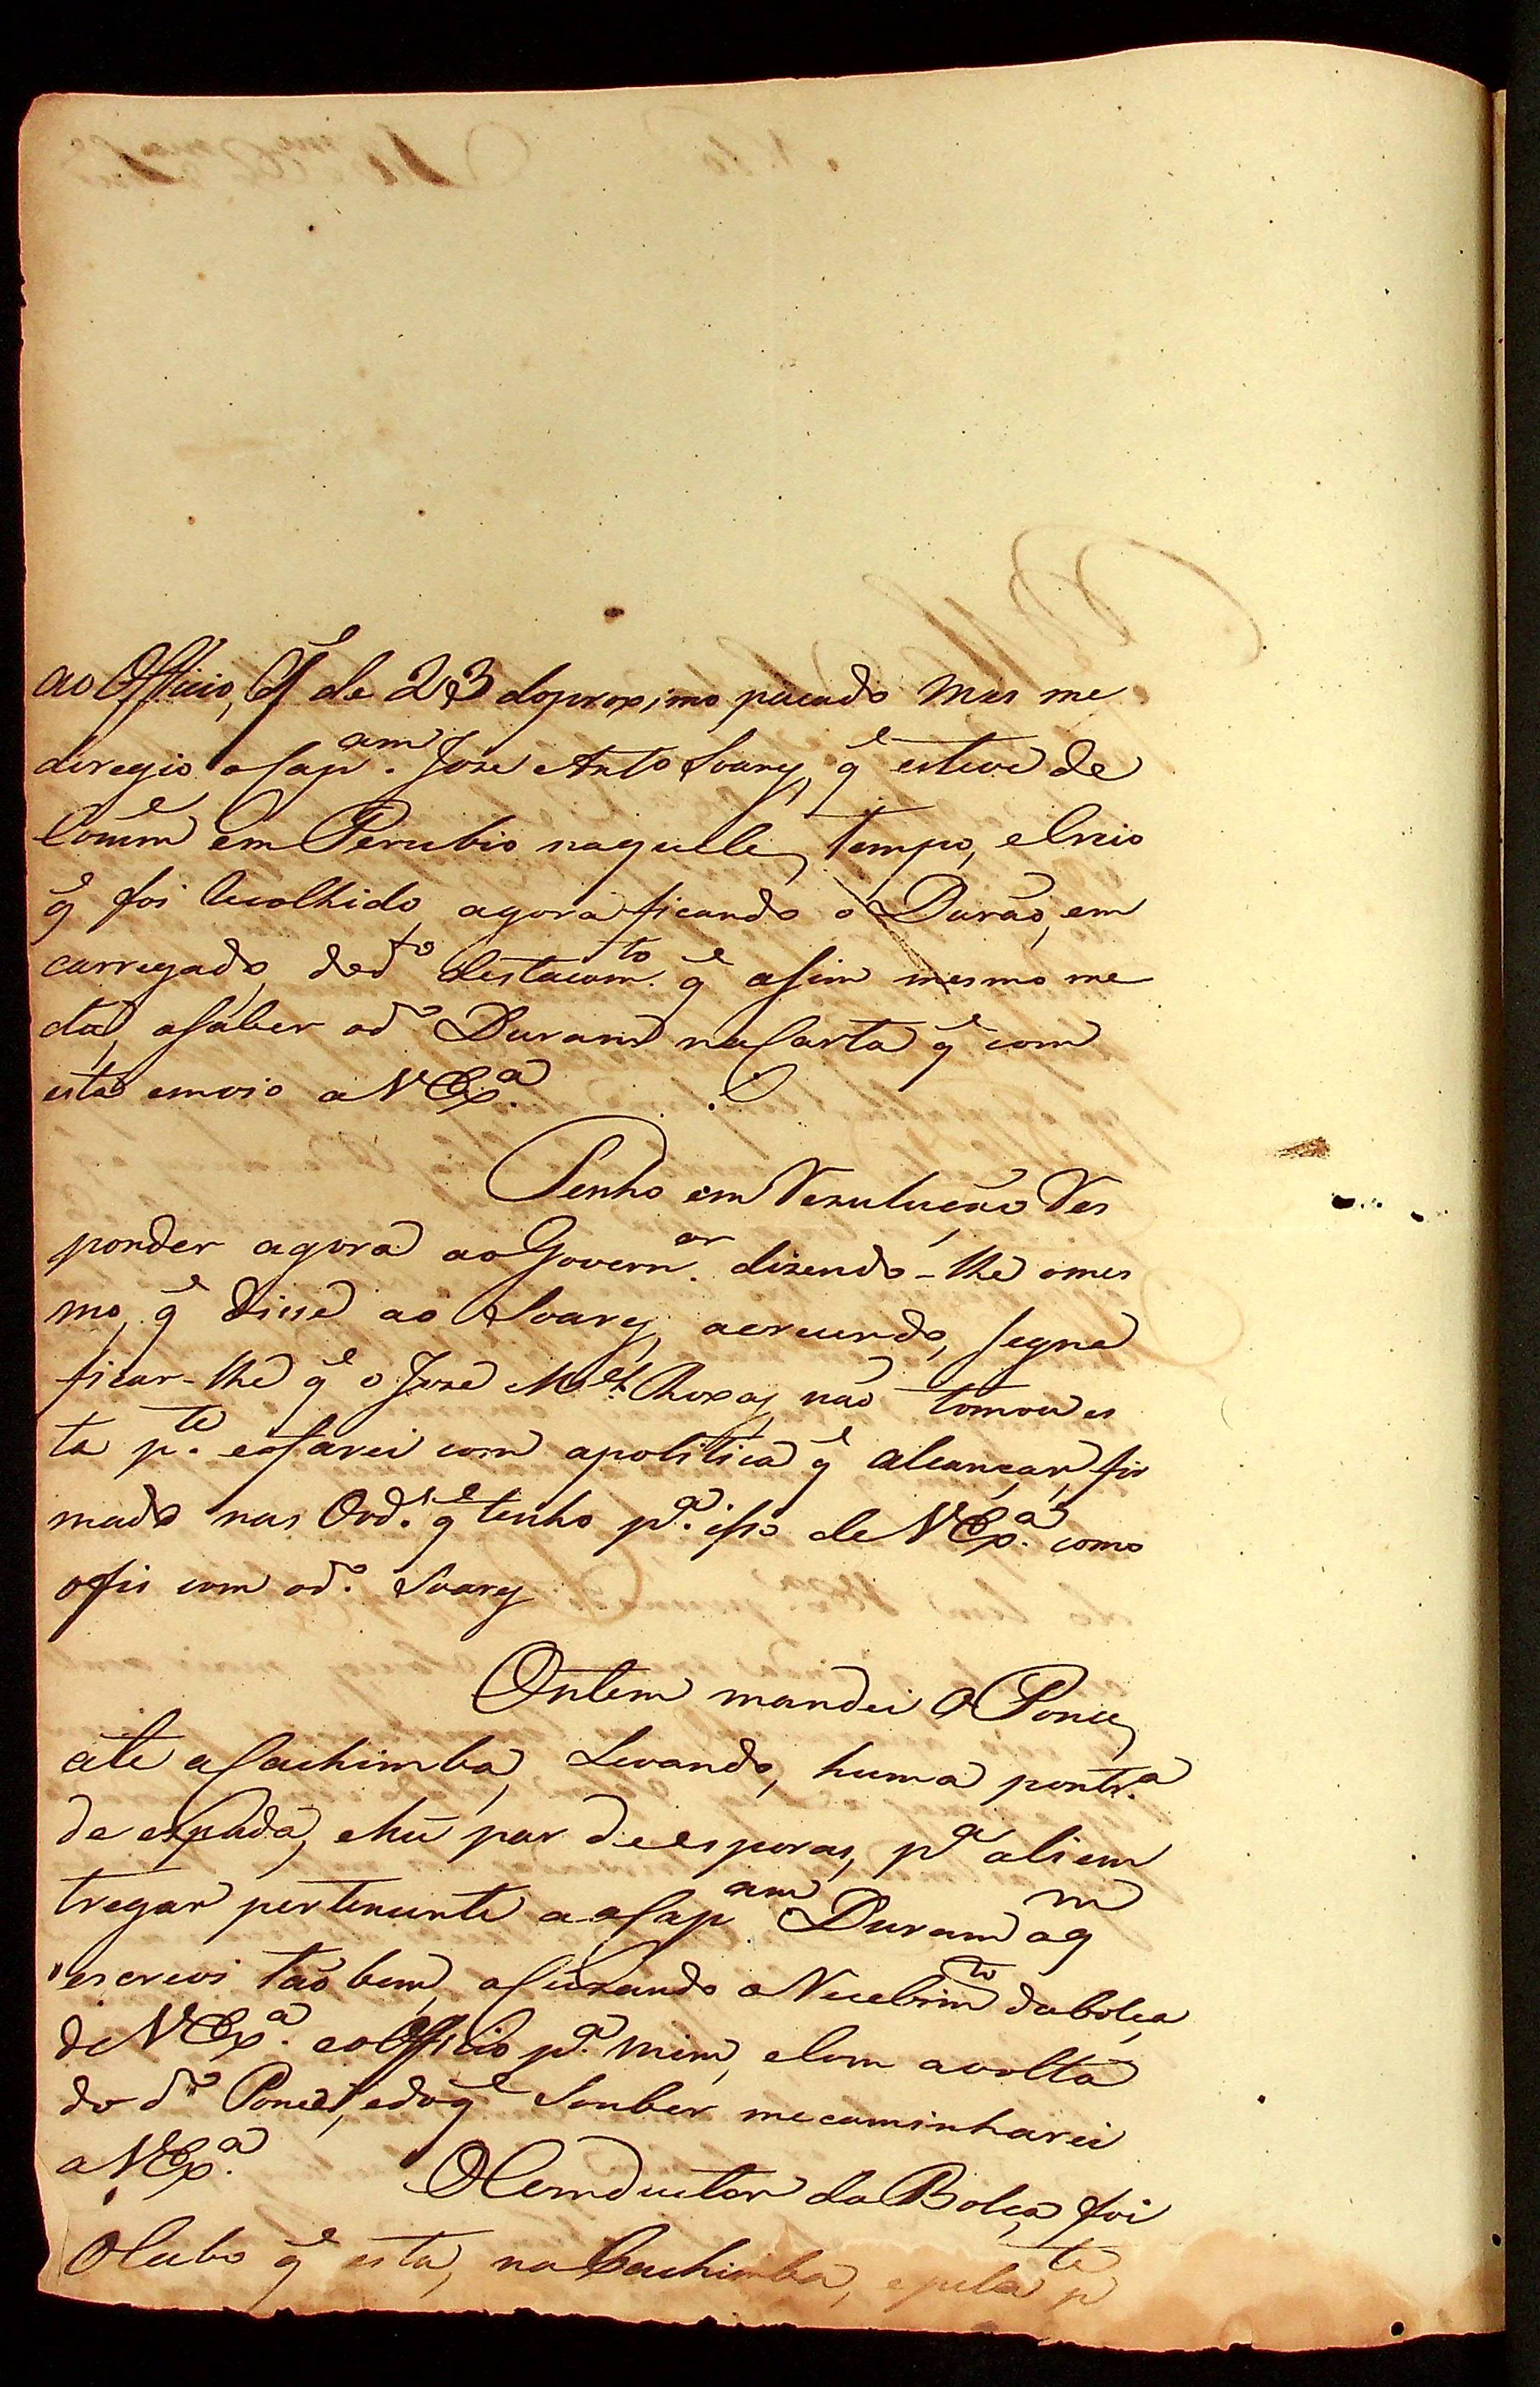 ao Officio, q̃ de 23 do proximo pacado Mes me
deregio o Cap.am Joze Anto Soares, q̃ esteve de
Comũm em Perubio naquele tempo, e Creio
q̃ foi Recolhido agora ficando o Durão, em
carregado, do d.to destacam.to q̃ asim mesmo me
da, a Saber o d.o Duram na Carta q̃ com
esta emvio a V Ex.a
Tenho em Rezulução Res
ponder agora ao Govern.or dizendo-lhe o mes
mo, q̃ disse ao Soares, acrecendo, Segne
ficar-lhe q̃ o Joze M.el Roxas não tomou es
ta p.te e o farei com a politica q̃ alcançar, fir
mado nas Ord.s q̃ tenho p.a isso de V Ex.a como
o fis com o d.o Soares
Ontem mandei o Ponce
ate a Cachimba, Levando, huma pontr.a
de espada, e hũ par de esporas, p.a ali em
tregar pertencente a o Cap.am Duram a q.m
escrevi tão bem, acuzando o Recebim.to da bolça
de V Ex.a e o Officio p.a mim, e Com a volta
do d.o Ponce, e do q̃ Souber me caminharei
a V Ex.a O Comductor da Bolça, foi
O Cabo q̃ esta, na Cachimba, e pela p.te